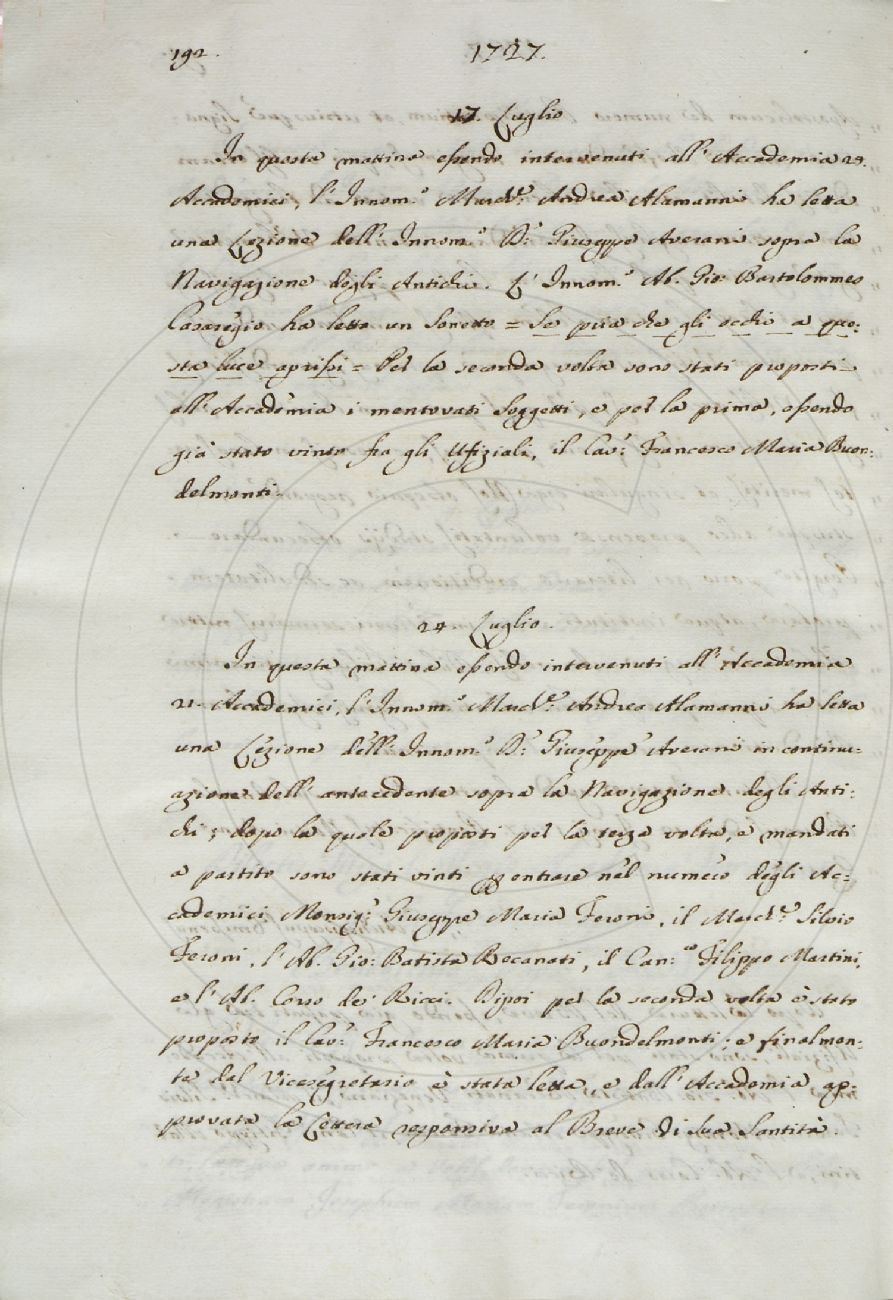 192.
1727.
17. Luglio
In questa mattina essendo intervenuti all'Accademia 29.
Accademici, l'Innom.º March.e Andrea Alamanni ha letta
una Lezione dell'Innom.º D.r Giuseppe Averani sopra la
Navigazione degli Antichi. L'Innom.º Ab. Gio: Bartolommeo
Casaregio ha letto un Sonetto = Se pria che gli occhi a que-
sta luce aprissi = Per la seconda volta sono stati proposti
all'Accademia i mentovati Soggetti, e per la prima, essendo
già stato vinto fra gli Ufiziali, il Cav.r Francesco Maria Buon-
delmonti.
24. Luglio.
In questa mattina essendo intervenuti all'Accademia
21. Accademici, l'Innom.º March.e Andrea Alamanni ha letta
una Lezione dell'Innom.º D.r Giuseppe Averani in continu-
azione dell'antecedente sopra la Navigazione degli Anti-
chi; dopo la quale proposti per la terza volta, e mandati
a partito sono stati vinti per entrare nel numero degli Ac-
cademici Monsig.r Giuseppe Maria Feroni, il March.e Silvio
Feroni, l'Ab. Gio: Batista Recanati, il Can.co Filippo Martini,
e l'Ab. Corso de' Ricci. Dipoi per la seconda volta è stato
proposto il Cav.r Francesco Maria Buondelmonti; e finalmen-
te dal Vicesegretario è stata letta, e dall'Accademia ap-
provata la Lettera responsiva al Breve di Sua Santità.